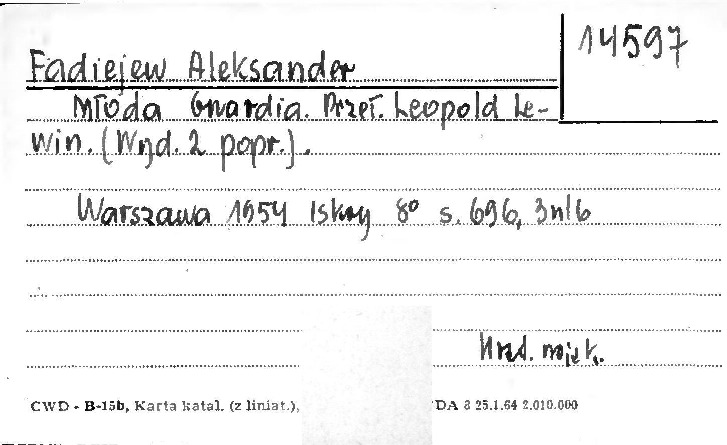 14597
Fadiejew Aleksander
Młoda Gwardia. Przeł. Leopold Le-
win. (Wyd. 2 popr.).
Warszawa 1954 Iskry 8° s. 696, 3nlb
CWD - B-15b, Karta katal. (z liniat.), DA 8 25.1.64 2.010.000